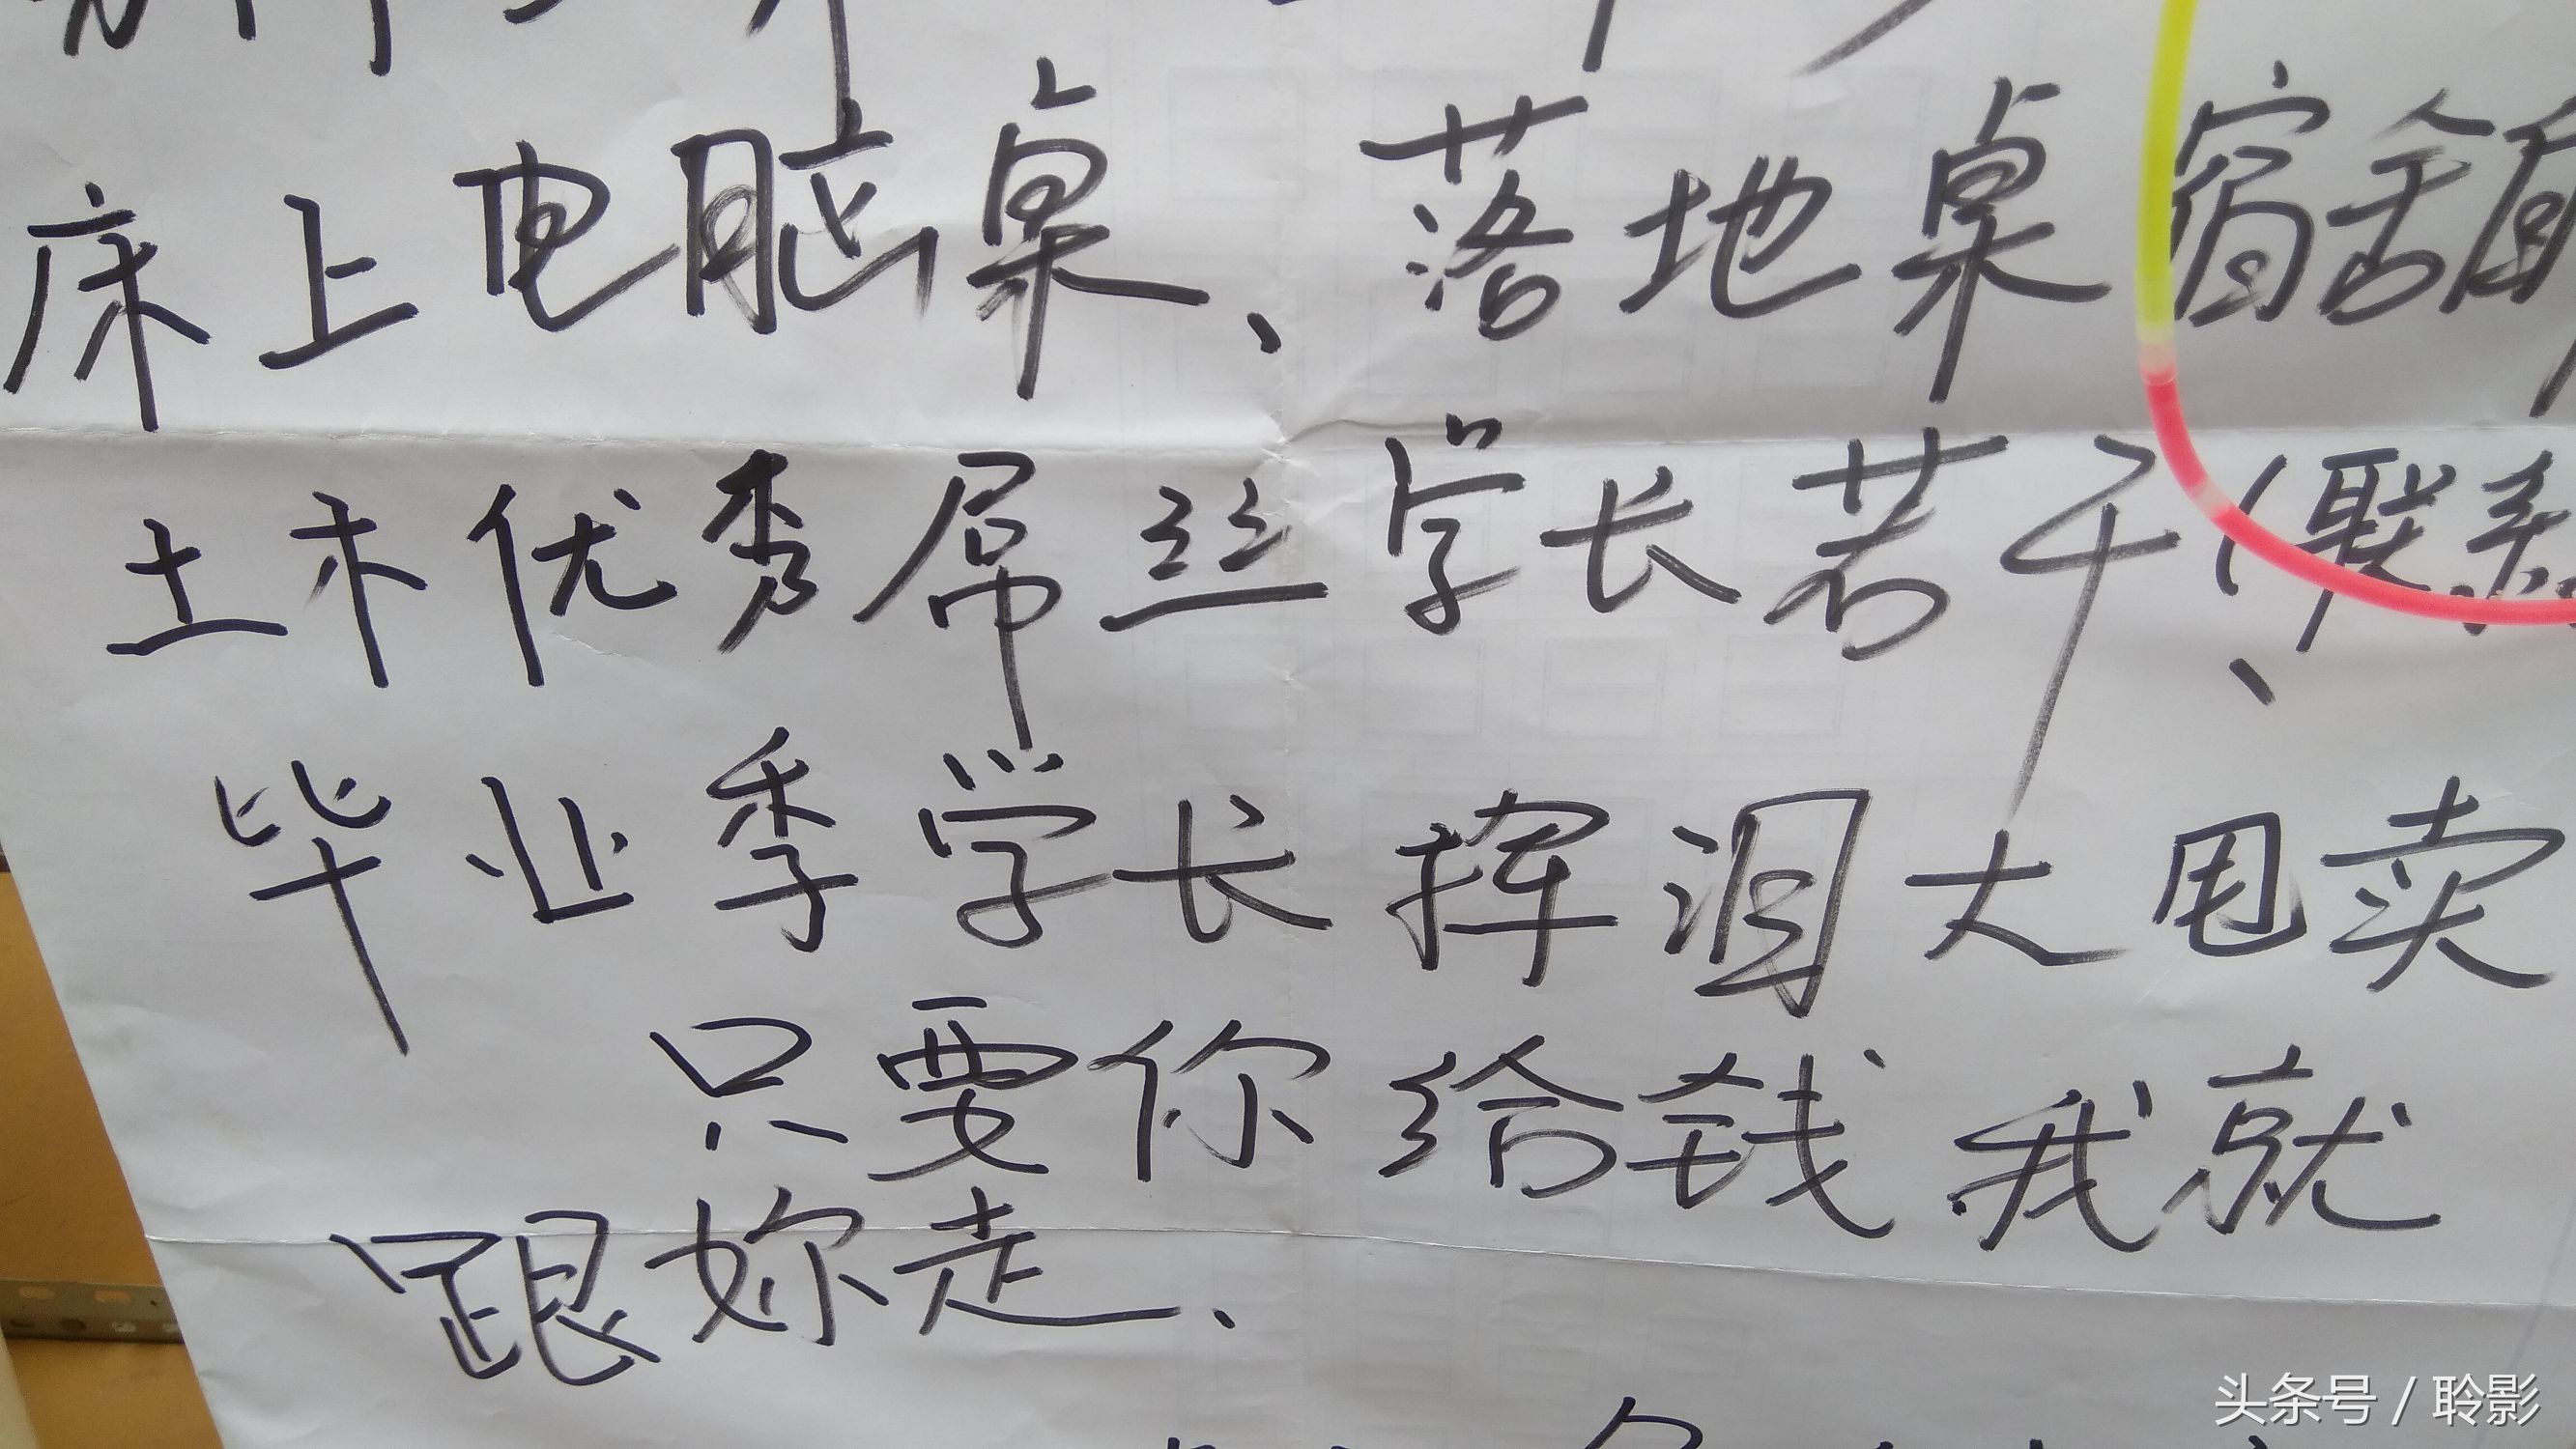 床上电脑桌、落地桌宿舍
土木优秀屌丝学长若干、(联系
毕业季学长挥泪大甩卖
只要你给钱我就
跟妳走.
头条号 / 聆影